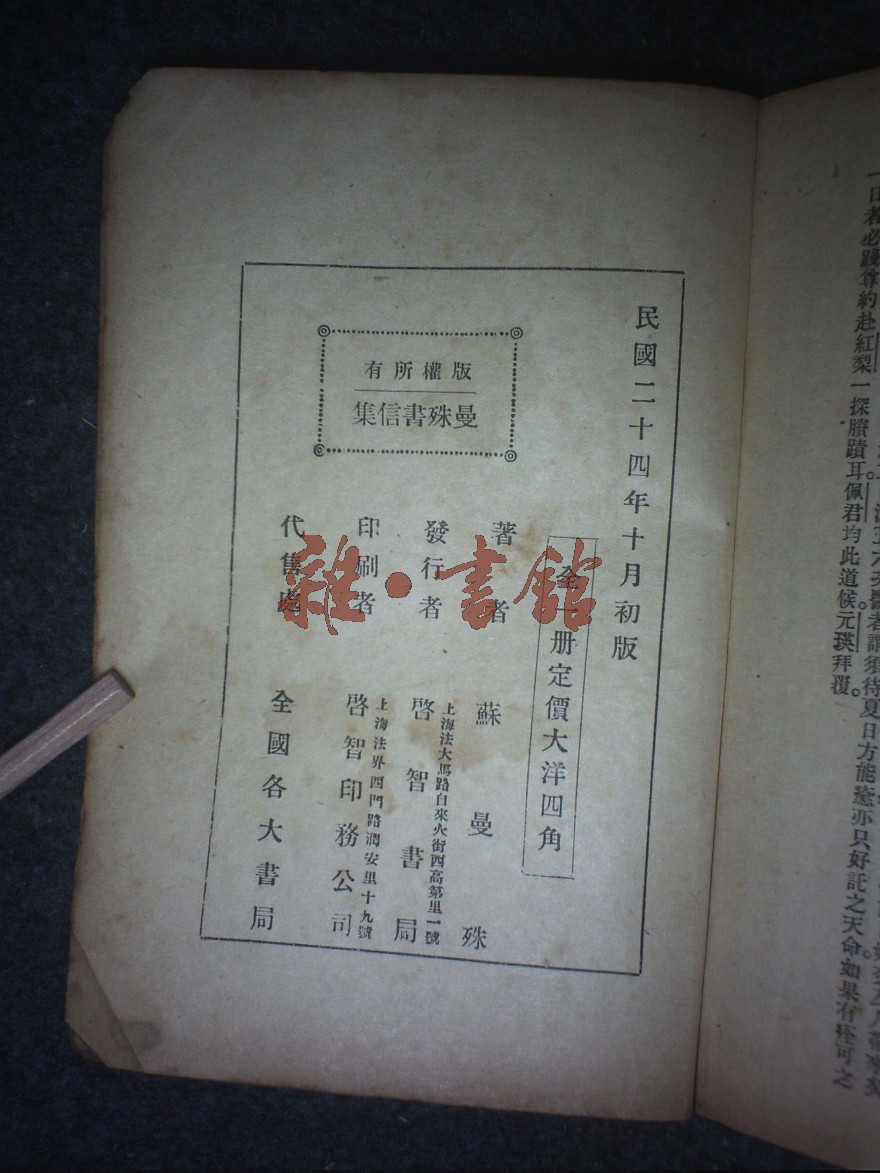 一日者必踐尊約赴紅梨一探賸蹟耳佩君均此道候元瑛拜覆。
民國二十四年十月初版
全一册定價大洋四角
版權所有
曼殊書信集
著者 蘇曼殊
發行者 啓智書局
上海法大馬路自來火街西高第里一號
印刷者 啓智印務公司
上海法界西門路潤安里十九號
代售處 全國各大書局
雜·書館